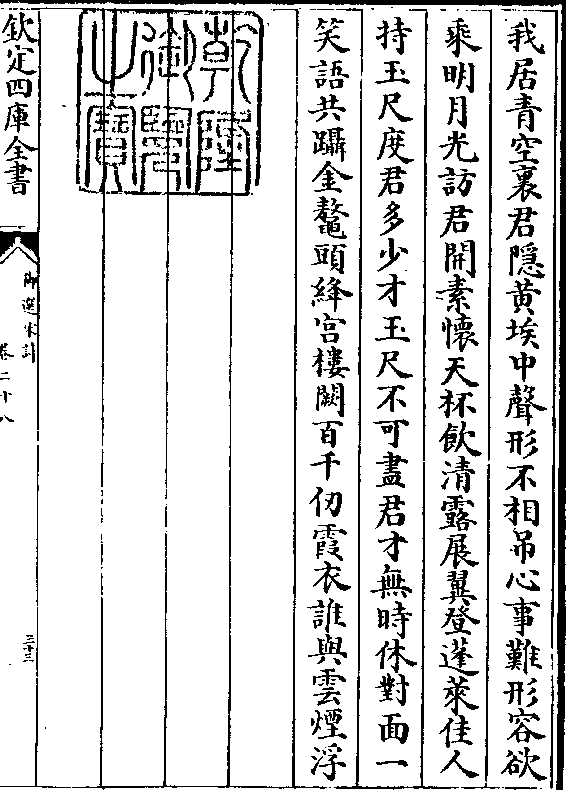 我居青空裏君隱黄埃中聲形不相吊心事難形容欲
乘明月光訪君開素懷天杯飲清露展翼登蓬萊佳人
持玉尺度君多少才玉尺不可盡君才無時休對面一
笑語共躡金鼇頭絳宮樓闕百千仞霞衣誰與雲煙浮
乾隆御覽之寶
欽定四庫全書
御選宋詩
卷二十八
三十三